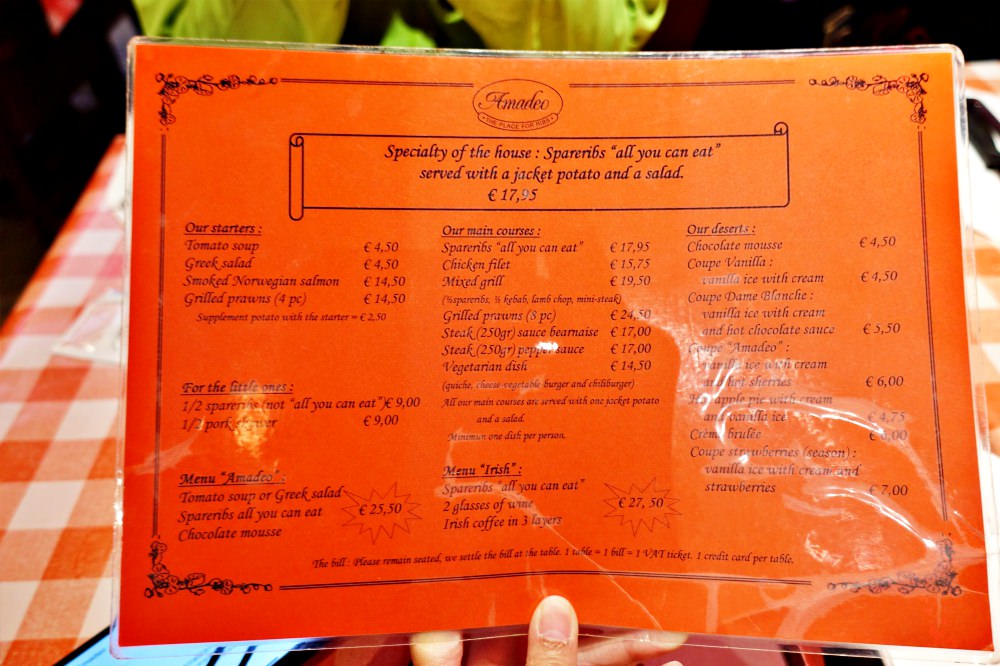 Amadeo
• THE PLACE FOR RIBS •
Specialty of the house : Spareribs "all you can eat"
served with a jacket potato and a salad.
€ 17,95
Our starters :
Tomato soup € 4,50
Greek salad € 4,50
Smoked Norwegian salmon € 14,50
Grilled prawns (4 pc) € 14,50
Supplement potato with the starter = € 2,50
For the little ones :
1/2 spareribs (not "all you can eat")€ 9,00
1/2 pork skewer € 9,00
Menu "Amadeo" :
Tomato soup or Greek salad
Spareribs all you can eat
Chocolate mousse
€ 25,50
Our main courses :
Spareribs "all you can eat" € 17,95
Chicken filet € 15,75
Mixed grill € 19,50
(½spareribs, ½ kebab, lamb chop, mini-steak)
Grilled prawns (8 pc) € 24,50
Steak (250gr) sauce bearnaise € 17,00
Steak (250gr) pepper sauce € 17,00
Vegetarian dish € 14,50
(quiche, cheese-vegetable burger and chiliburger)
All our main courses are served with one jacket potato
and a salad.
Minimun one dish per person.
Menu "Irish" :
Spareribs "all you can eat"
2 glasses of wine
Irish coffee in 3 layers
€ 27, 50
Our deserts :
Chocolate mousse € 4,50
Coupe Vanilla :
vanilla ice with cream € 4,50
Coupe Dame Blanche :
vanilla ice with cream
and hot chocolate sauce € 5,50
Coupe "Amadeo" :
vanilla ice with cream
and hot sherries € 6,00
Hot apple pie with cream
and vanilla ice € 4,75
Crème brulée € 6,00
Coupe strawberries (season) :
vanilla ice with cream and
strawberries € 7,00
The bill : Please remain seated, we settle the bill at the table. 1 table = 1 bill = 1 VAT ticket. 1 credit card per table.